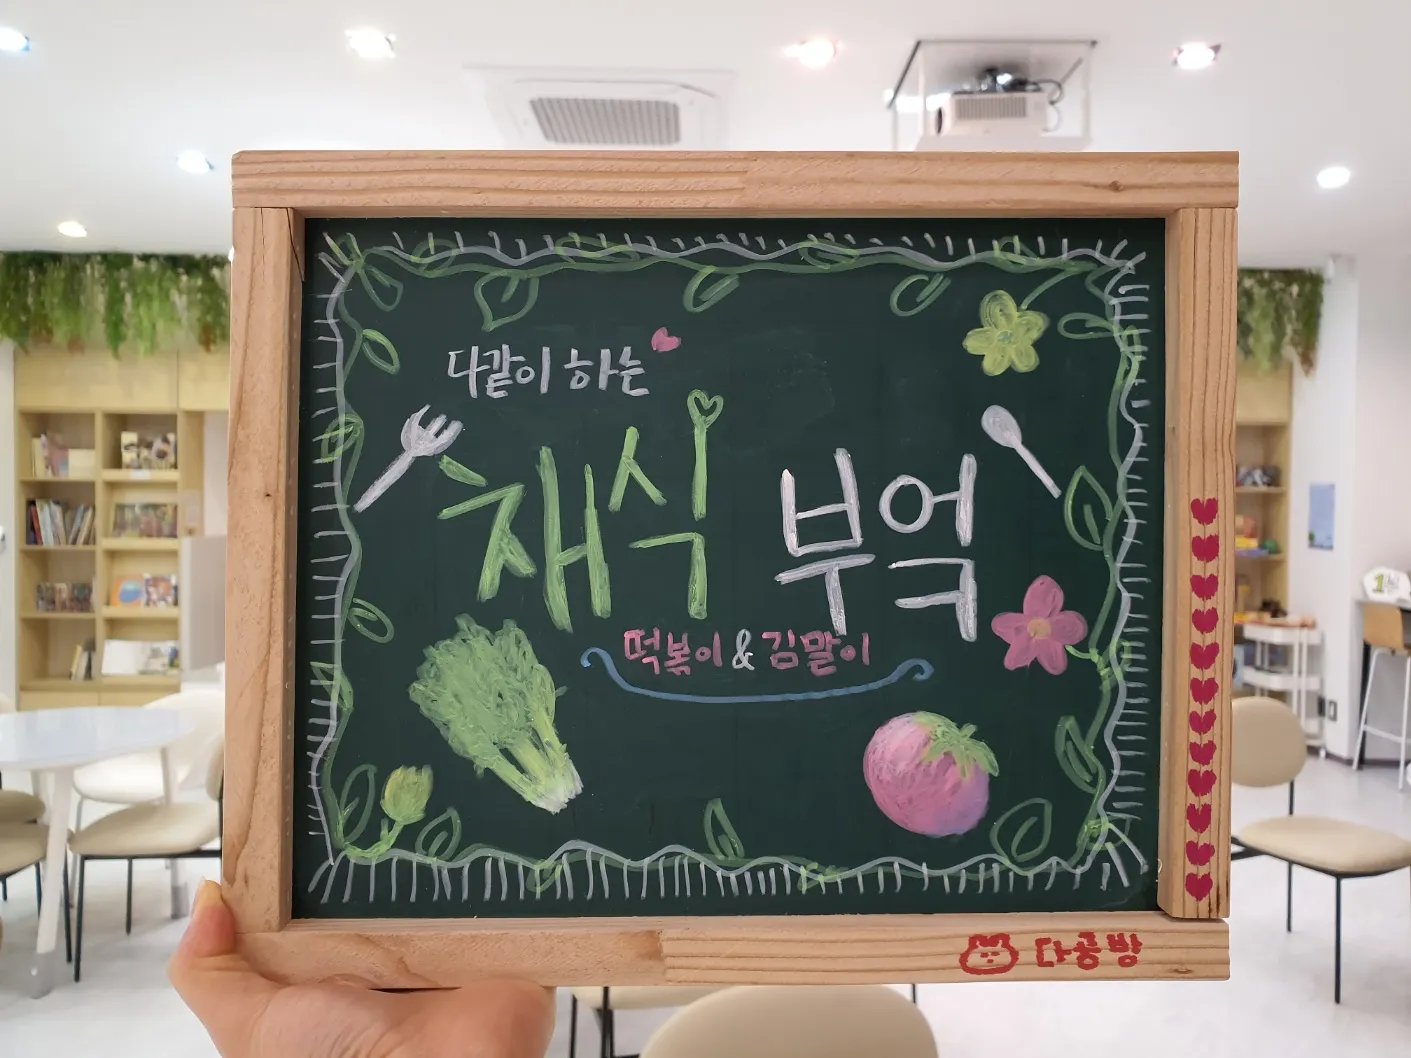 다같이 하는
채식 부엌
떡볶이 & 김말이
다공방